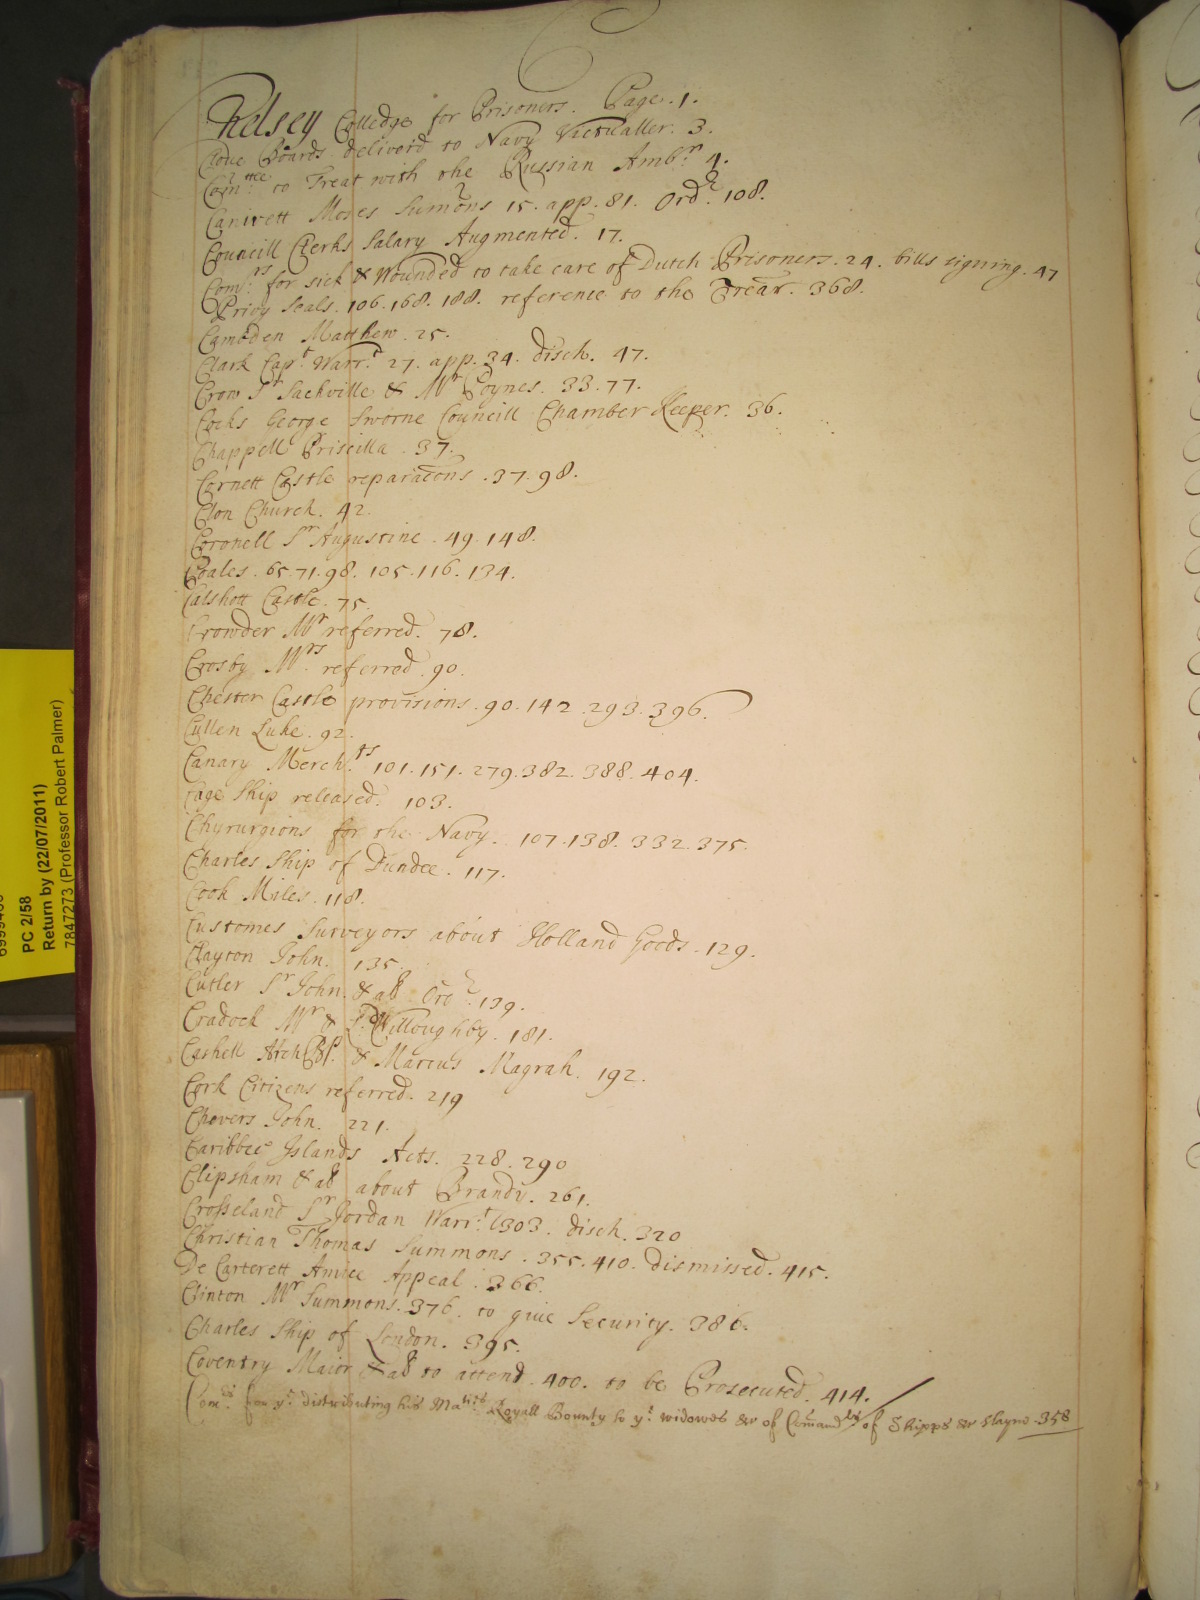 Chelsey Colledge for Prisoners. Page. 1.
Clove Boards deliverd to Navy Victualler. 3.
Com:ttee to Treat with the Russian Ambr. 4.
Canivett Moses Sumons 15. app. 81. Ordr. 108.
Councill Clerks Salary Augmented. 17.
Comrs. for sick & Wounded to take care of Dutch Prisoners. 24. bills signing. 47
Privy Seals. 106. 168. 188. reference to the Trear. 368.
Cambden Matthew. 25.
Clark Capt. Warrt. 27. app. 34. disch. 47.
Crow Sr Sackville & Mr Poynes. 33. 77.
Cocks George Sworne Councill Chamber Keeper. 36.
Chappell Priscilla. 37.
Cornett Castle reparacons. 37. 98.
Clon Church. 42.
Coronell Sr Augustine. 49. 148.
Coales. 65. 71. 98. 105. 116. 134.
Calshott Castle. 75.
Crowder Mr referred. 78.
Crosby Mrs. referred. 90.
Chester Castle provisions. 90. 142. 293. 396.
Cullen Luke. 92.
Canary Merch:ts 101. 151. 279. 382. 388. 404.
Cage Ship released. 103.
Chyrurgions for the Navy. 107. 138. 332. 375.
Charles Ship of Dundee. 117.
Cook Miles. 118.
Customes Surveyors about Holland Goods. 129.
Clayton John. 135.
Cutler Sr John. & als Ordr. 139.
Cradock Mr & Ld. Willoughby. 181.
Cashell ArchBp. & Marcus Magrah. 192.
Cork Citizens referred. 219
Chevers John. 221.
Caribbee Islands Acts. 228. 290
Clipsham & als about Brandy. 261.
Crosseland Sr Jordan Warrt. 303. disch. 320
Christian Thomas Summons. 355. 410. dismissed. 415.
De Carterett Amice Appeal. 366.
Clinton Mr Summons. 376. to give Security. 386.
Charles Ship of London. 395.
Coventry Maior & als to attend. 400. to be Prosecuted. 414.
Comrs for ye distributing his Maties Royall Bounty to ye widowes &c of Comandrs of Shipps &c slayne 358
PC 2/58
Return by (22/07/2011)
7847273 (Professor Robert Palmer)